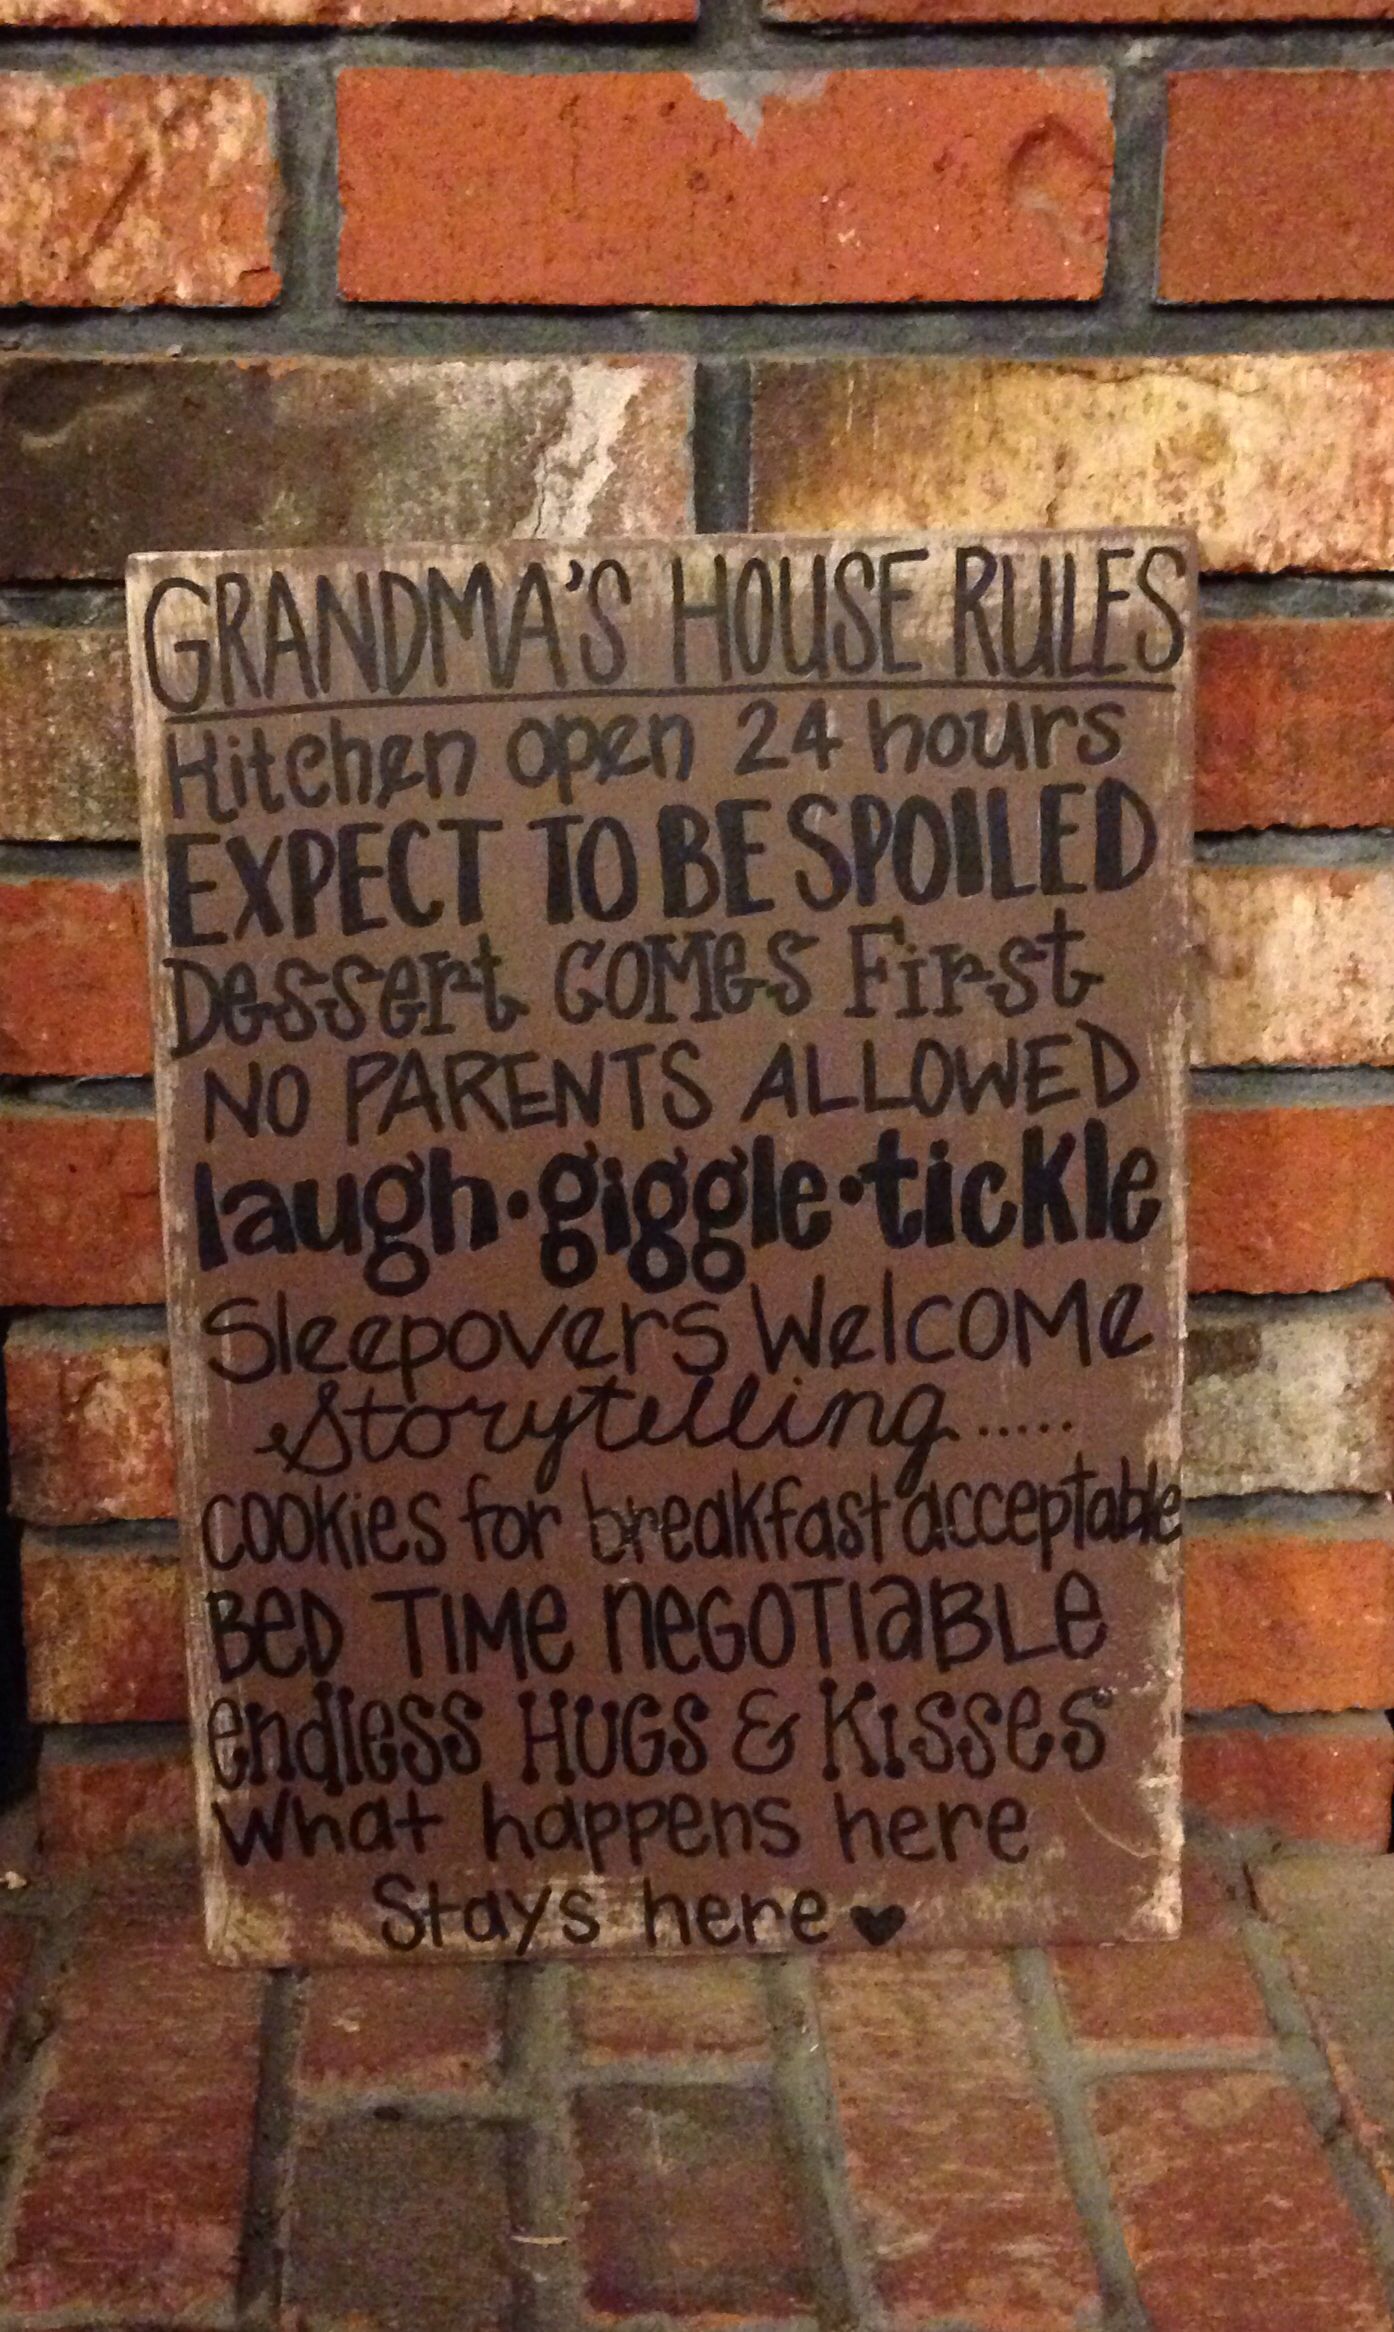 GRANDMA'S HOUSE RULES
Kitchen open 24 hours
EXPECT TO BE SPOILED
Dessert COMes First
NO PARENTS ALLOWED
laugh·giggle·ticKle
Sleepovers Welcome
Storytelling......
cookies for breakfast acceptable
BeD TIMe neGOTIaBLe
endless HUGS & Kisses
What happens here
Stays here ♥